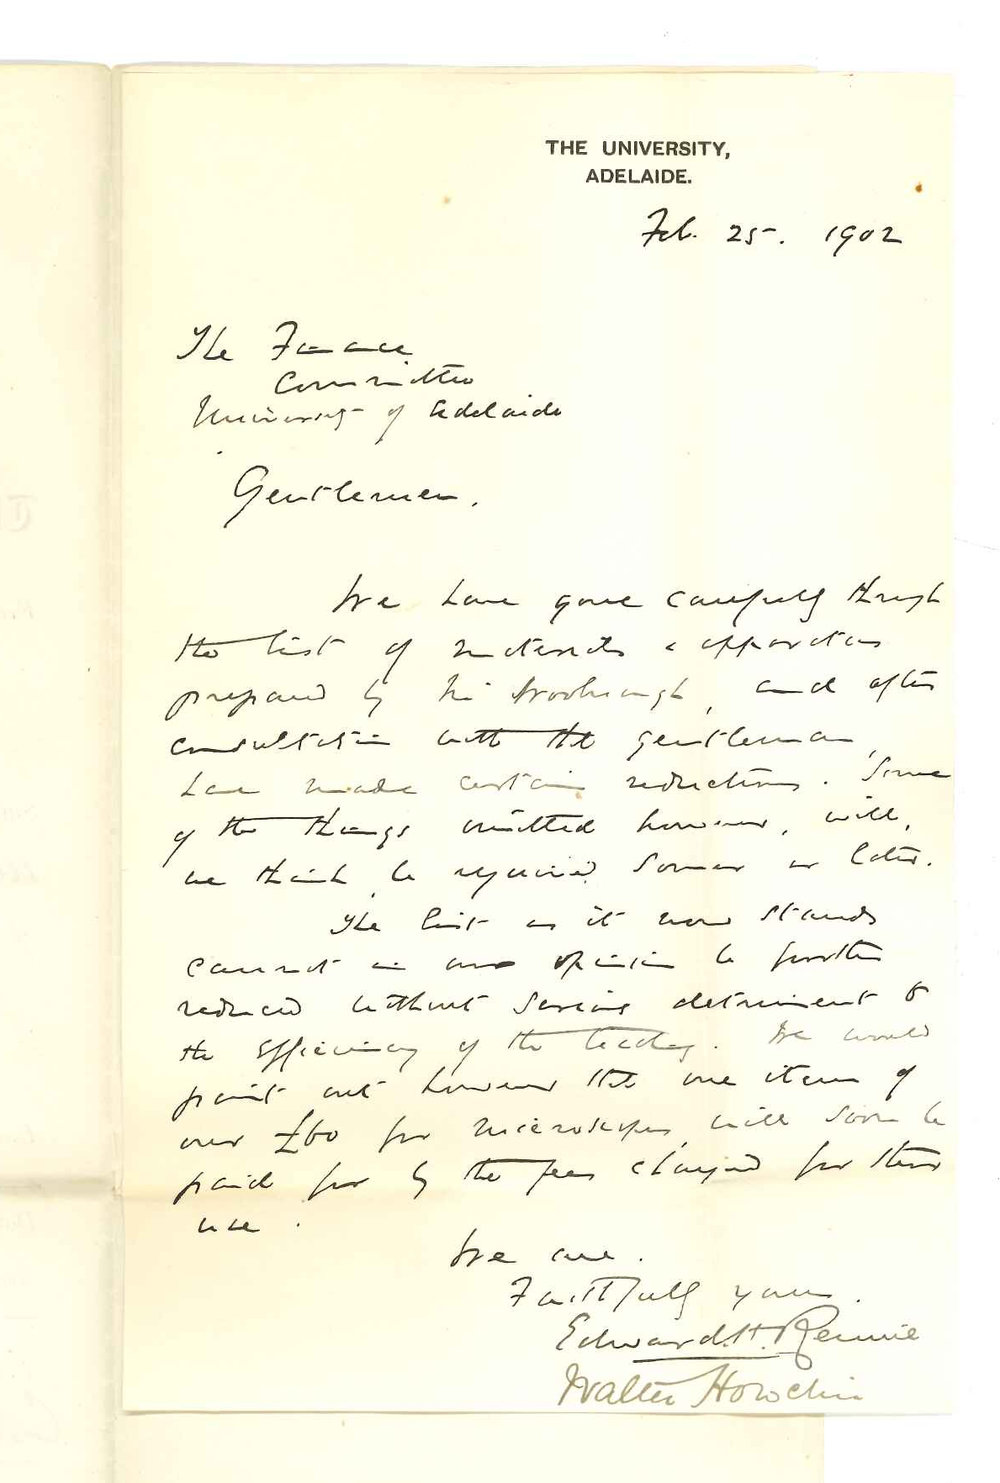 THE UNIVERSITY,
ADELAIDE.
Feb. 25. 1902
The Finance
Committee
University of Adelaide
Gentlemen.
We have gone carefully through
the list of materials & apparatus
prepared by Mr , and after
consultation with that gentleman,
have made certain reductions. Some
of the things omitted however, will,
we think, be required sooner or later.
The list as it now stands
cannot in our opinion be further
reduced without serious detriment to
the efficiency of the teaching. We would
point out however that one item of
over £60 for microscopes, will soon be
paid for by the fees charged for their
use.
We are.
Faithfully yours.
Edward H. Rennie
Walter Howchin